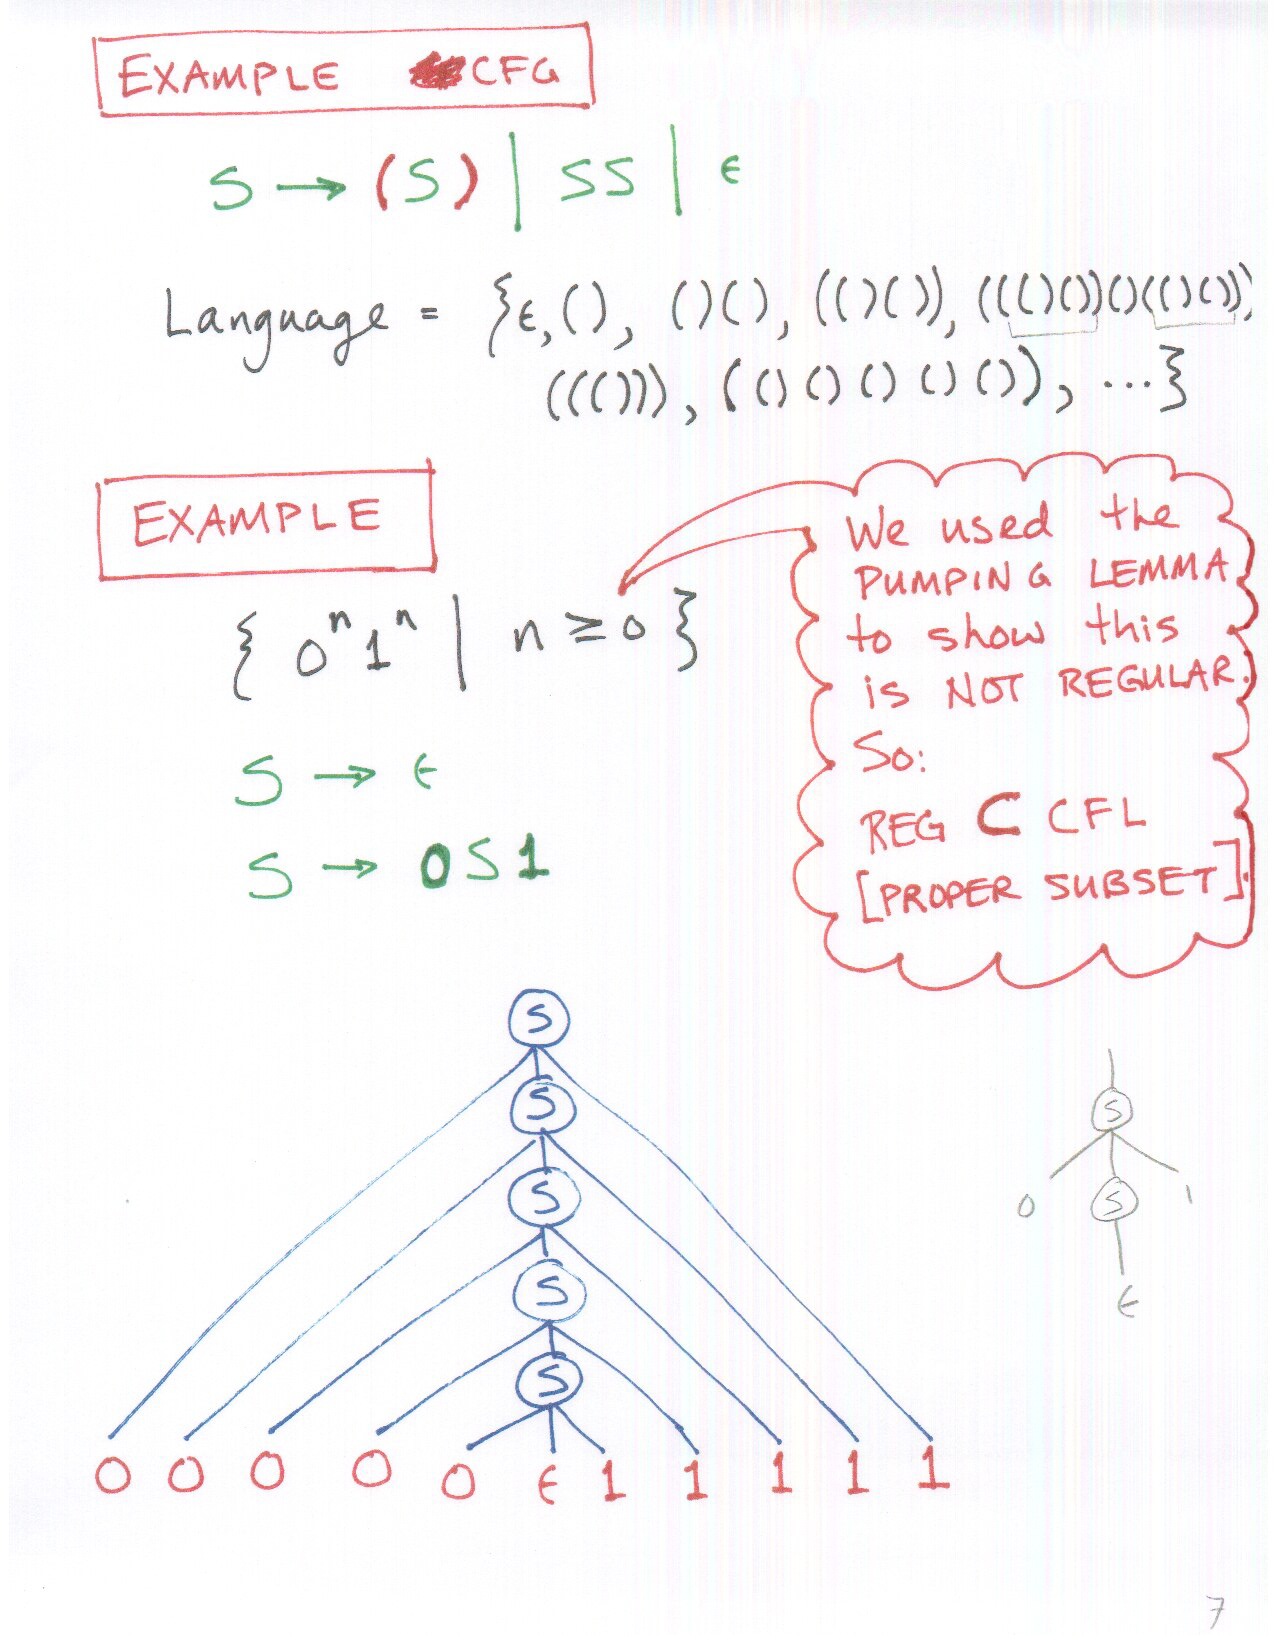 EXAMPLE CFG
S → (S) | SS | ε
Language = {ε, (), ()(), (()()), (((()())()(()())),
((())), (()()()()()), ...}
EXAMPLE
{ 0ⁿ1ⁿ | n ≥ 0 }
S → ε
S → 0S1
We used the
PUMPING LEMMA
to show this
is NOT REGULAR.
So:
REG ⊂ CFL
[PROPER SUBSET]
S
S
S
S
S
0 0 0 0 0 ε 1 1 1 1 1
S
0 S 1
ε
7